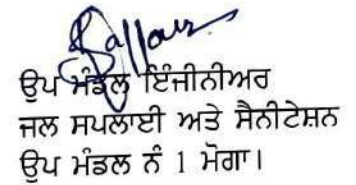 ਉਪ ਮੰਡਲ ਇੰਜੀਨੀਅਰ
ਜਲ ਸਪਲਾਈ ਅਤੇ ਸੈਨੀਟੇਸ਼ਨ
ਉਪ ਮੰਡਲ ਨੰ 1 ਮੋਗਾ।